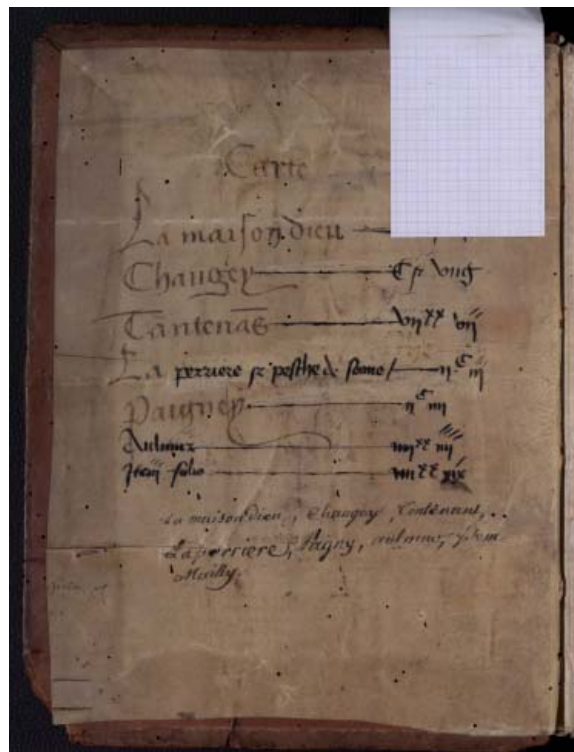 Carte
La maison dieu
Changey C et ung
Tantenas vii xx vii
La perriere et pesche de sone ii C iii
Paigney ii C iiii
Aulmur iiii xx iiii
Item folio iiii xx xix
La maison dieu, Changey, Tentenant,
La perriere, Pagny, aulmur,
Meilly.